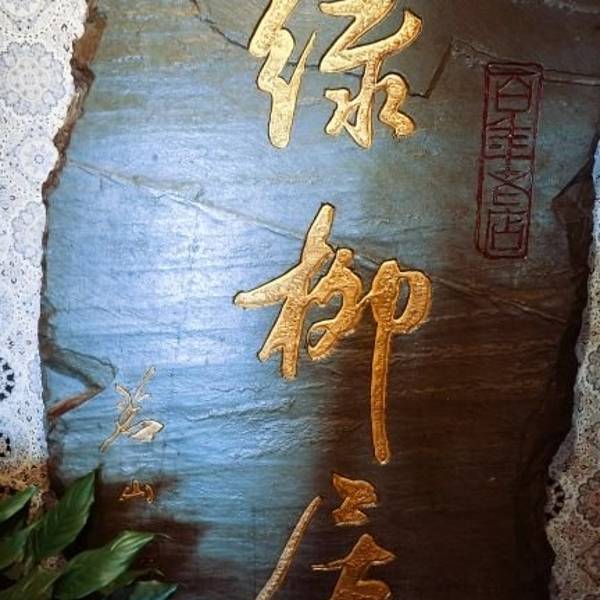 百年老店
绿柳居
若山